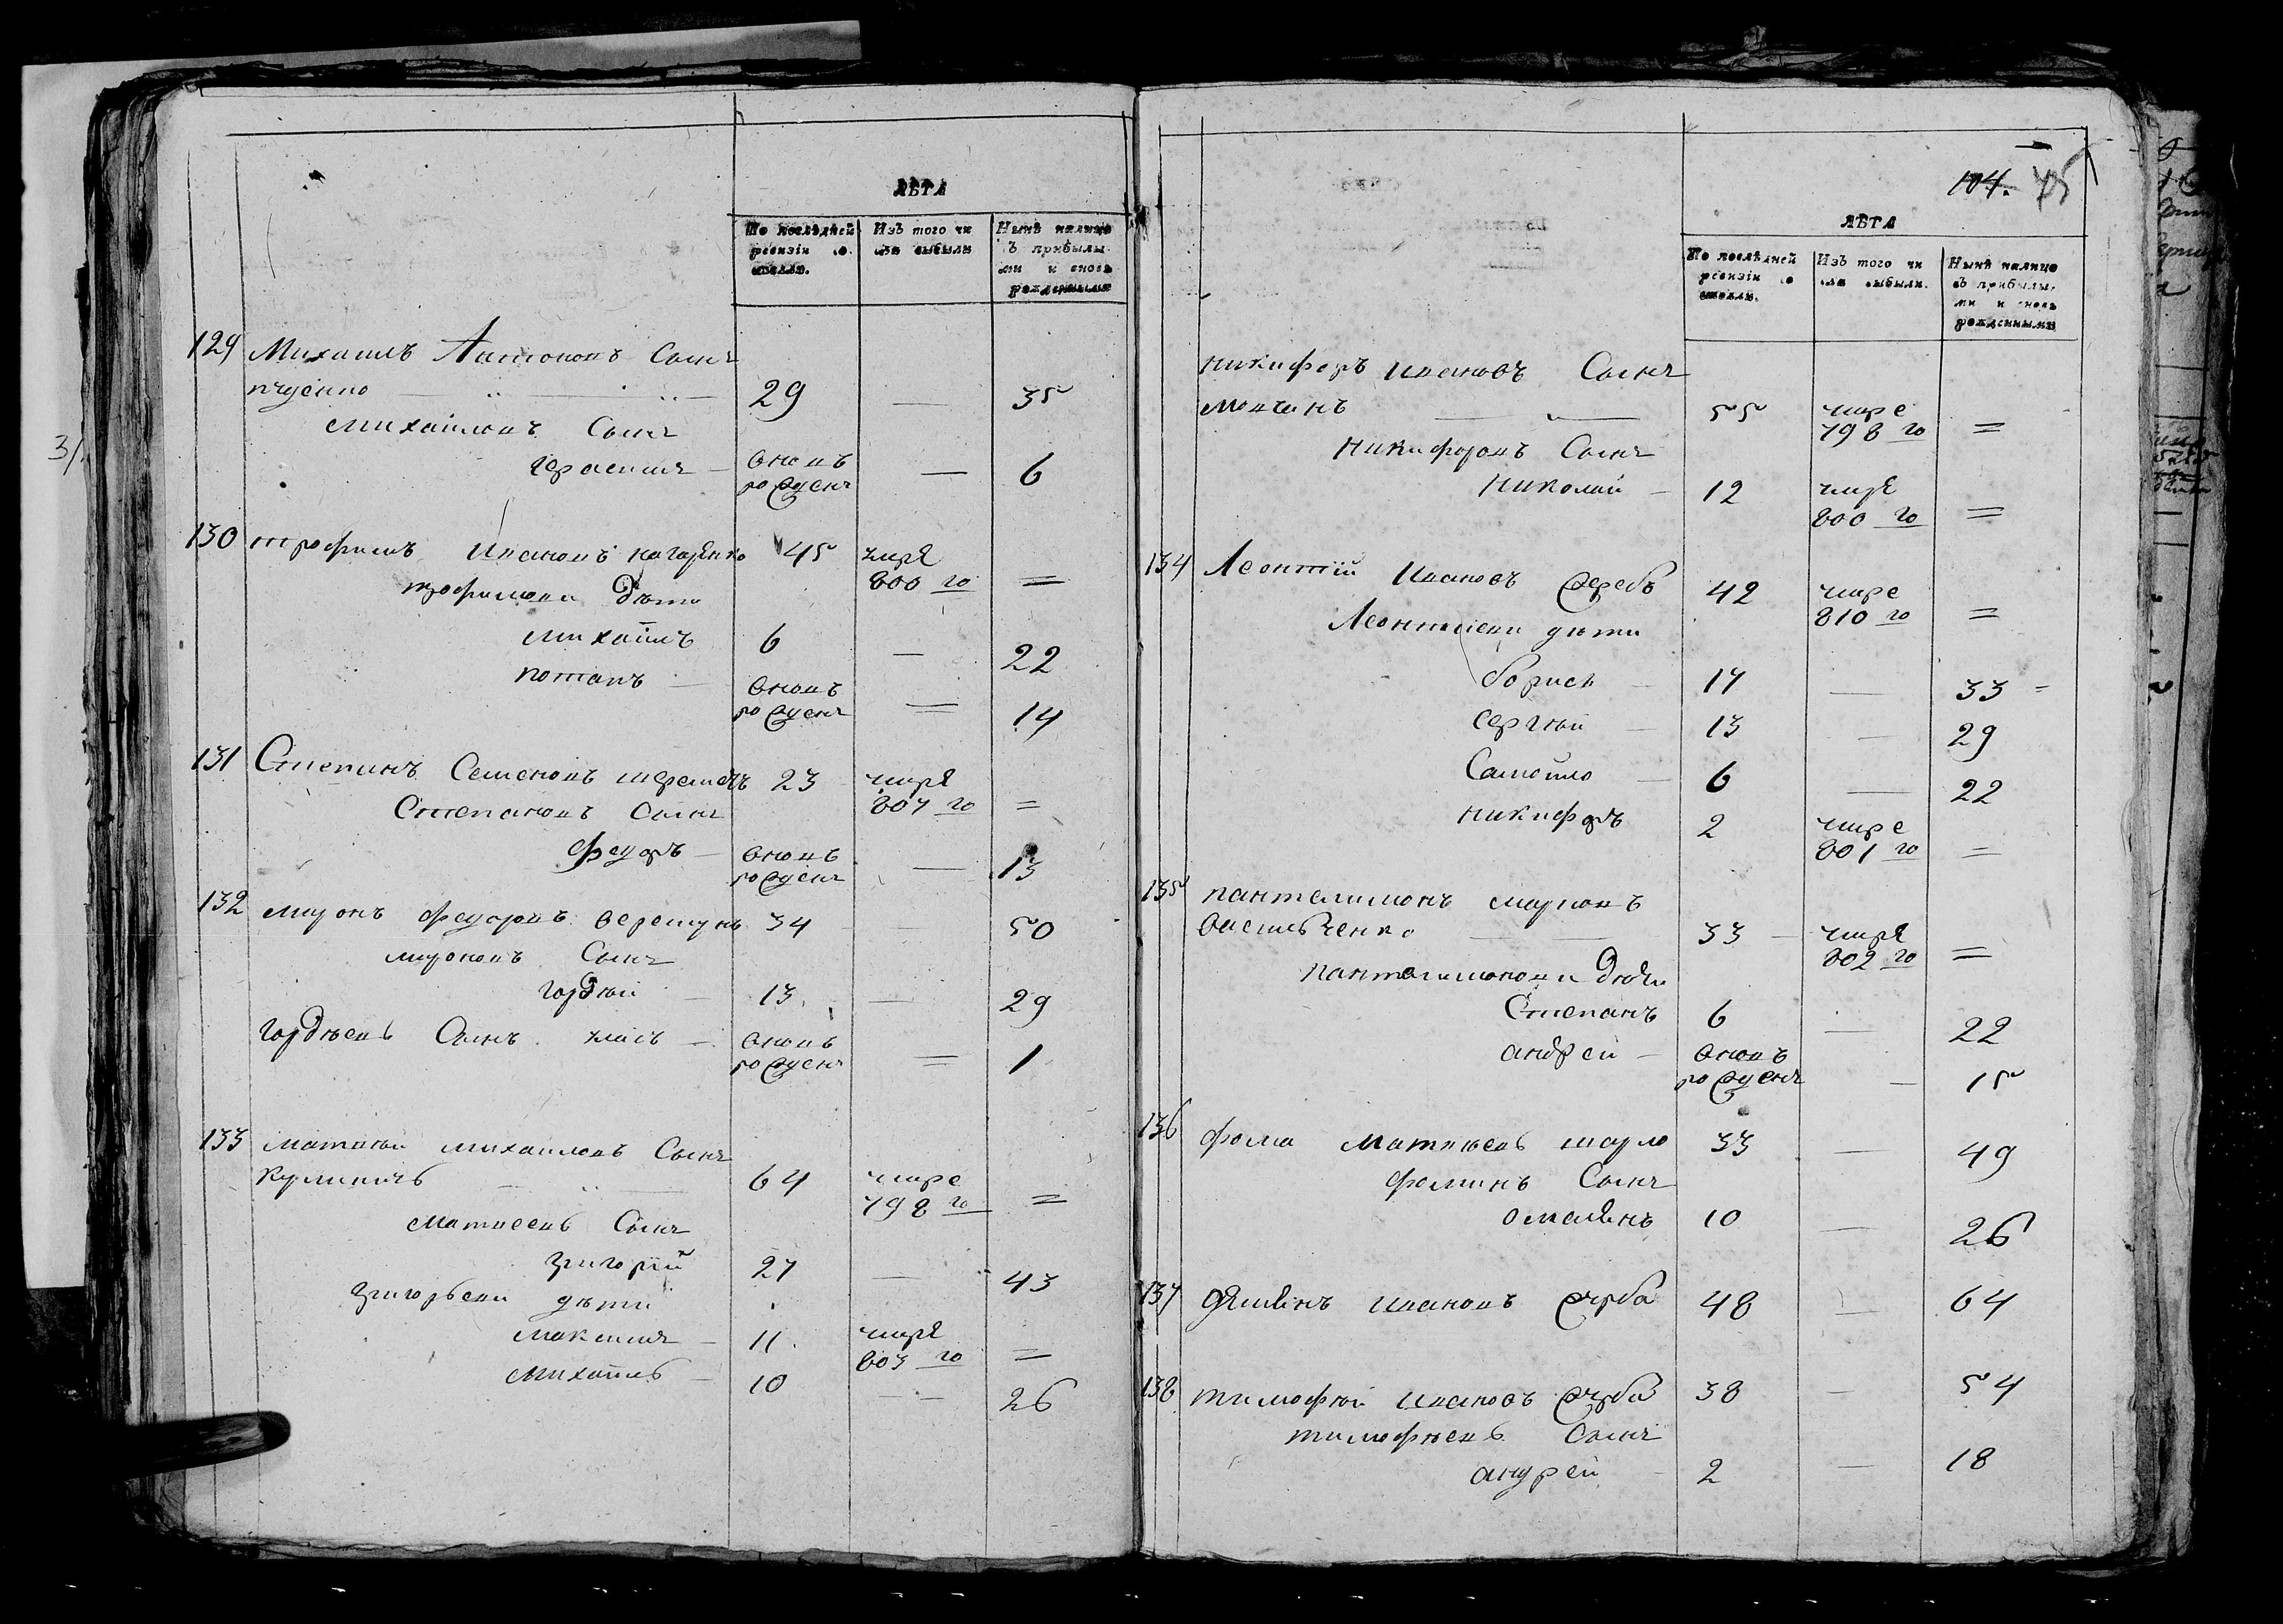 ЛѢТА
По послѣдней
ревизіи со
стояло.
Изъ того чи
сла выбыли
Нынѣ налицо
съ прибылы
ми и вновь
рожденными
129 Михаилъ Антоновъ Сынъ
29 — 35
Михаиловъ Сынъ
Герасимъ — вновь
рожденъ — 6
130 трофимъ Ивановъ 45 умре
800 го =
трофимови дѣти
Михаилъ 6 — 22
потапъ — вновь
рожденъ = 14
131 Степанъ Семеновъ шереметъ 23 умре
807 го =
Степановъ Сынъ
Федоръ — вновь
рожденъ — 13
132 миронъ федоровъ 34 — 50
мироновъ Сынъ
гордѣй — 13 — 29
гордѣевъ Сынъ власъ — вновь
рожденъ = 1
133 матвѣй михаиловъ Сынъ
Куликичъ 64 умре
798 го =
матвеевъ Сынъ
григорій 27 — 43
григорьеви дѣти
максимъ — 11 умре
803 го =
Михаилъ — 10 — 26
104. 75
ЛѢТА
По послѣдней
ревизіи со
стояло.
Изъ того чи
сла выбыли.
Нынѣ налицо
съ прибылы
ми и вновь
рожденными
никифоръ ивановъ Сынъ
мовчанъ 55 умре
798 го =
никифоровъ Сынъ
николай — 12 умре
800 го =
134 Леонтій Ивановъ 42 умре
810 го =
Леонтиеви дѣти
борисъ — 17 — 33 =
сергѣй — 13 — 29
Самойло — 6 — 22
никифоръ 2 умре
801 го =
135 пантелимонъ марковъ
васильченко 33 — умре
802 го =
пантелимонови дѣти
Степанъ 6 — 22
андрей — вновь
рожденъ — 15
136 фома матвѣевъ шарло 33 — 49
фоминъ Сынъ
омелянъ 10 — 26
137 демянъ ивановъ 48 — 64
138 тимофѣй ивановъ 38 — 54
тимофѣевъ Сынъ
андрей 2 — 18